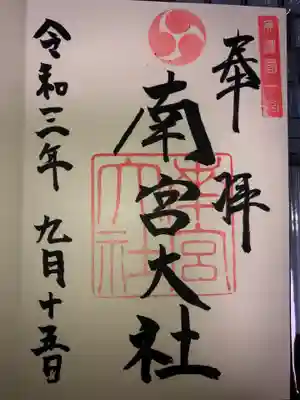 奉拝
南宮大社
南宮大社
令和三年 九月十五日